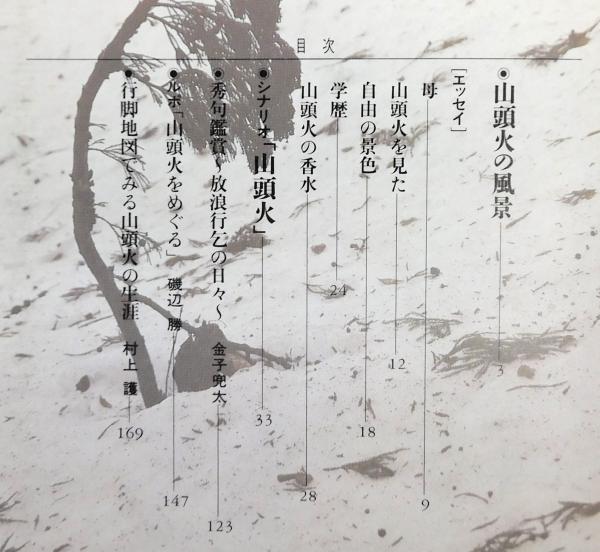 目次
●山頭火の風景 3
［エッセイ］
母 9
山頭火を見た 12
自由の景色 18
学歴 24
山頭火の香水 28
●シナリオ「山頭火」 33
●秀句鑑賞〜放浪行乞の日々〜 金子兜太 123
●ルポ「山頭火をめぐる」 磯辺勝 147
●行脚地図でみる山頭火の生涯 村上護 169